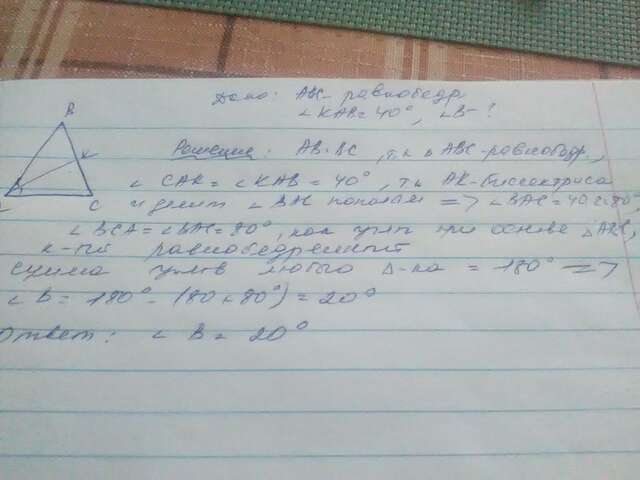 Дано: ABC - равнобедр.
∠KAB = 40°, ∠B - ?
B
K
C
Решение: AB = BC, т.к. △ABC - равнобедр.,
∠CAK = ∠KAB = 40°, т.к. AK - биссектриса
и делит ∠BAC пополам => ∠BAC = 40·2 = 80°
∠BCA = ∠BAC = 80°, как углы при основе △ABC,
к-ый равнобедренный
Сумма углов любого △-ка = 180° =>
∠B = 180° - (80 + 80°) = 20°
Ответ: ∠B = 20°